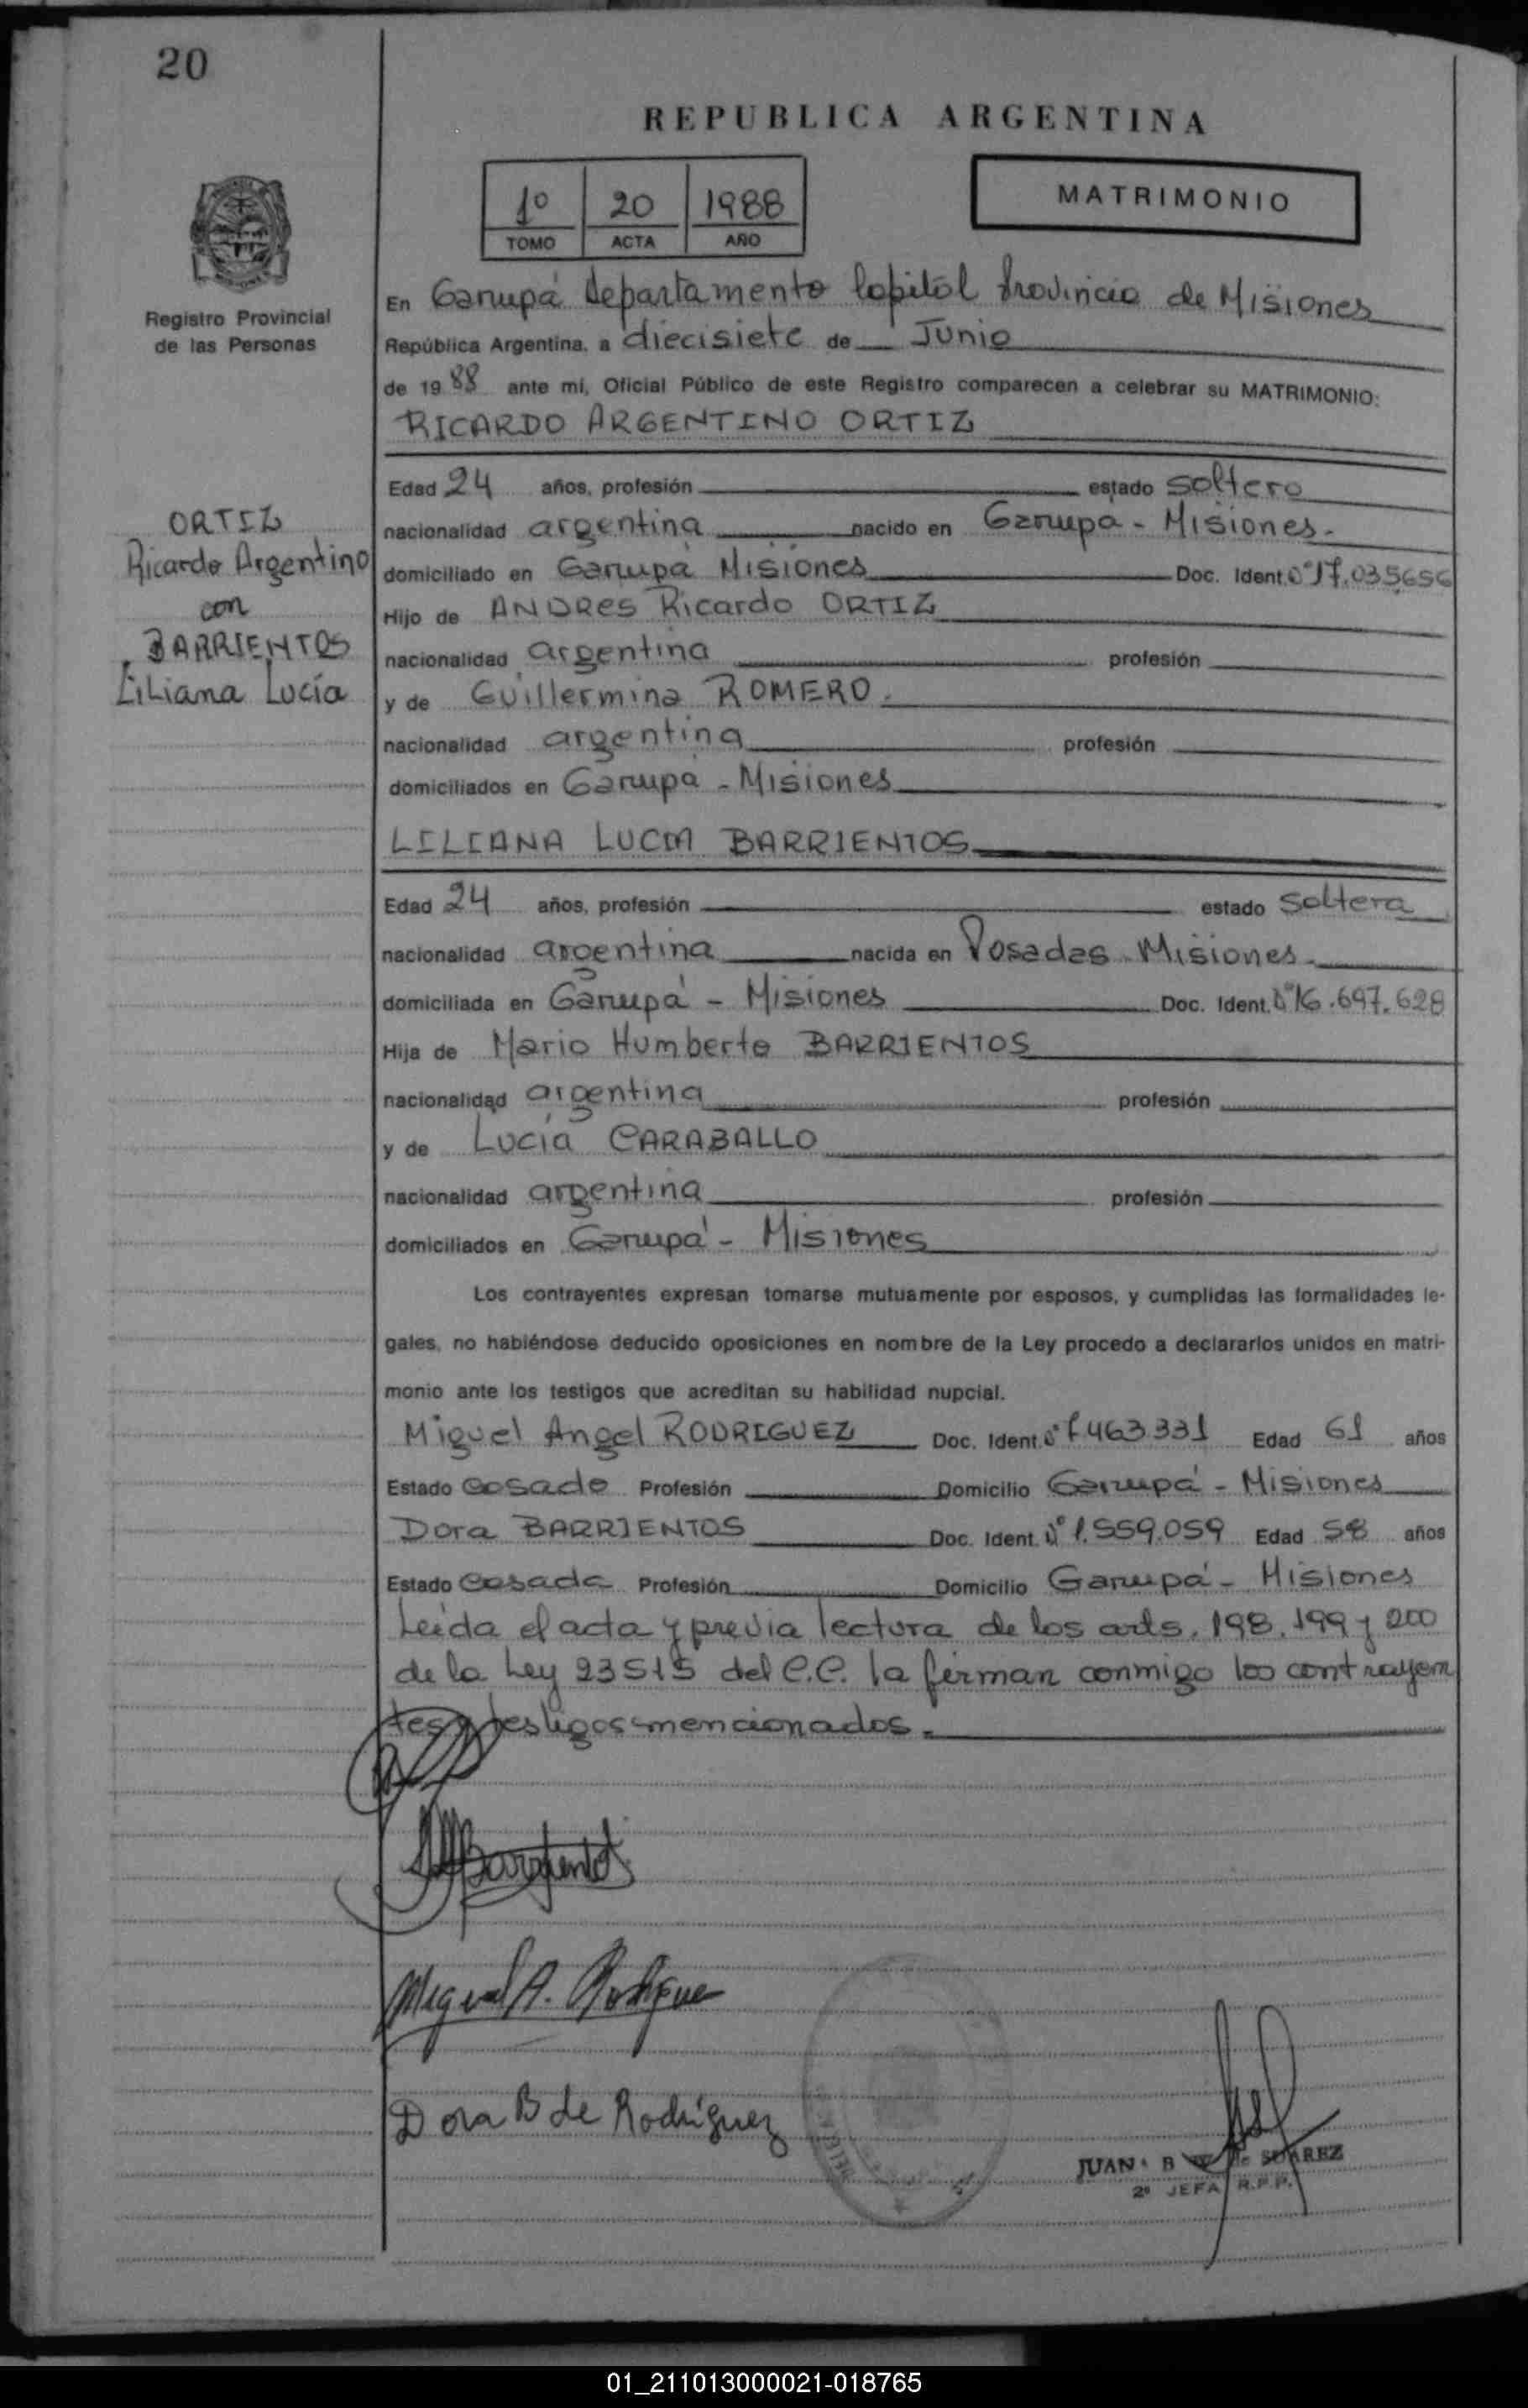 20
REPUBLICA ARGENTINA
1º 20 1988
TOMO ACTA AÑO
MATRIMONIO
Registro Provincial
de las Personas
En Garupá departamento Capital Provincia de Misiones
República Argentina, a diecisiete de Junio
de 1988 ante mí, Oficial Público de este Registro comparecen a celebrar su MATRIMONIO:
RICARDO ARGENTINO ORTIZ
Edad 24 años, profesión estado soltero
nacionalidad argentina nacido en Garupá - Misiones.
domiciliado en Garupá Misiones Doc. Ident. 17.035656
Hijo de ANDRES Ricardo ORTIZ
nacionalidad argentina profesión
y de Guillermina ROMERO.
nacionalidad argentina profesión
domiciliados en Garupá - Misiones
ORTIZ
Ricardo Argentino
con
BARRIENTOS
Liliana Lucía
LILIANA LUCIA BARRIENTOS
Edad 24 años, profesión estado soltera
nacionalidad argentina nacida en Posadas Misiones.
domiciliada en Garupá - Misiones Doc. Ident. 16.697.628
Hija de Mario Humberto BARRIENTOS
nacionalidad argentina profesión
y de Lucía CARABALLO
nacionalidad argentina profesión
domiciliados en Garupá - Misiones
Los contrayentes expresan tomarse mutuamente por esposos, y cumplidas las formalidades le-
gales, no habiéndose deducido oposiciones en nombre de la Ley procedo a declararlos unidos en matri-
monio ante los testigos que acreditan su habilidad nupcial.
Miguel Angel RODRIGUEZ Doc. Ident. 7.463.331 Edad 61 años
Estado casado Profesión Domicilio Garupá - Misiones
Dora BARRIENTOS Doc. Ident. Nº 1.559.059 Edad 58 años
Estado casada Profesión Domicilio Garupá - Misiones
Leída el acta y previa lectura de los arts. 198, 199 y 200
de la Ley 23515 del C.C. la firman conmigo los contrayen
tes y testigos mencionados.
Barrientos
Miguel A. Rodrigue
Dora B de Rodríguez
JUANA B de SUAREZ
2º JEFA R.P.P.
01_211013000021-018765